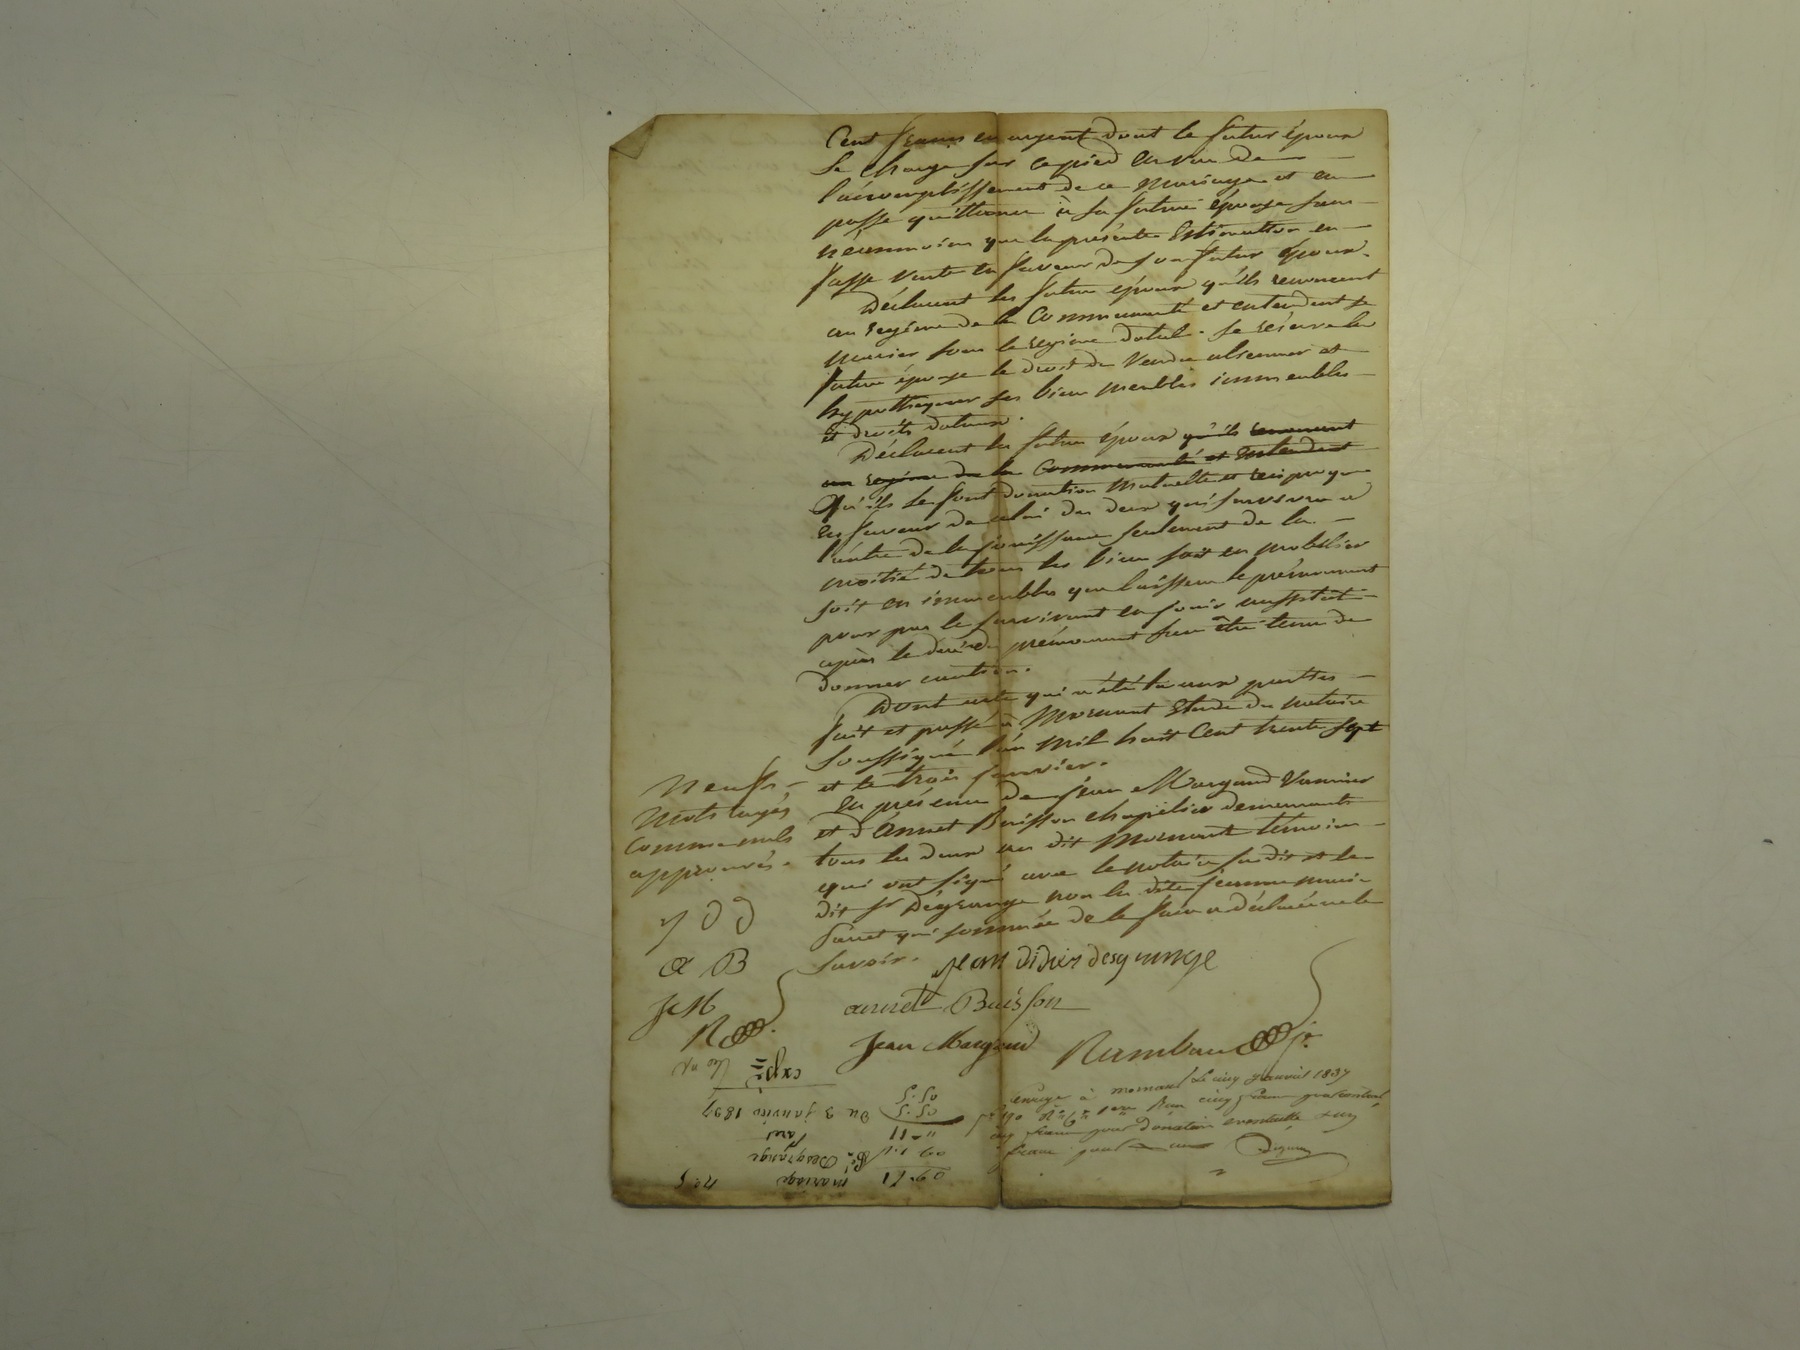 Cent francs en argent dont le futur époux
se charge sur ce pied en vue de
l'accomplissement de ce mariage et en
passe quittance à sa future épouse sans
néanmoins que la présente Estimation en
fasse vente en faveur de son futur époux.
Déclarent les futurs époux qu'ils renoncent
au regime de la Communauté et entendent se
marier sous le regime dotal. se réserve la
future épouse le droit de Vendre alienner et
hypothequer ses bien meubles immeubles
et droits dotaux.
Déclarent les futurs époux qu'ils renoncent
au regime de la Communauté et entendent
Qu'ils se font donation mutuelle et reciproque
en faveur de celui des deux qui survivra a
l'autre de la jouissance seulement de la
moitié de tous les bien soit en mobilier
soit en immeubles que laissera le prémourant
pour par le survivant en jouir aussitot
après le décès du prémourant sans être tenu de
donner caution.
Dont acte qui a été lu aux parties
fait et passé à Mornant Etude du notaire
soussigné l'an mil huit Cent trente sept
et le trois janvier.
En présence de jean Margand Vannier
et d'Annet Buisson chapelier demeurants
tous les deux au dit Mornant témoins
qui ont signé avec le notaire susdit et le
dit sr Desgrange non la dite femme marie
Paret qui sommée de le faire a déclaré ne le
savoir.
Neufs
Mots rayés
Comme nuls
approuvés.
J D D
a B
J M
R
jean didier desgrange
annet Buisson
Jean Margand
Rambau jr.
Enregé à mornant le cinq janvier 1837
cinq francs pour donation eventuelle
n° 5
mariage
Desgrange
Paret
Du 3 janvier 1837
expé